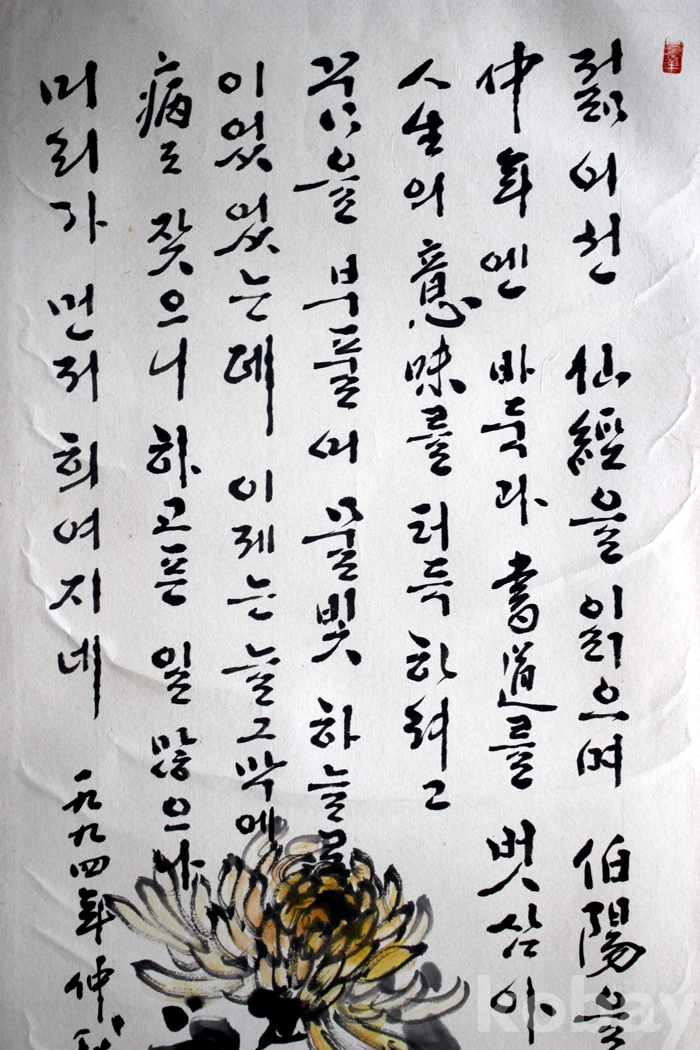 젊어선 仙經을 읽으며 伯陽을
仲年엔 바둑과 書道를 벗삼아
人生의 意味를 터득하려고
꾸ㅁ을 부풀어 물빛 하늘
이었었는데 이제는 늘그막에
病도 잦으니 하고픈 일 많으나
머리가 먼저 희여지네
一九九四年 仲秋
kobay